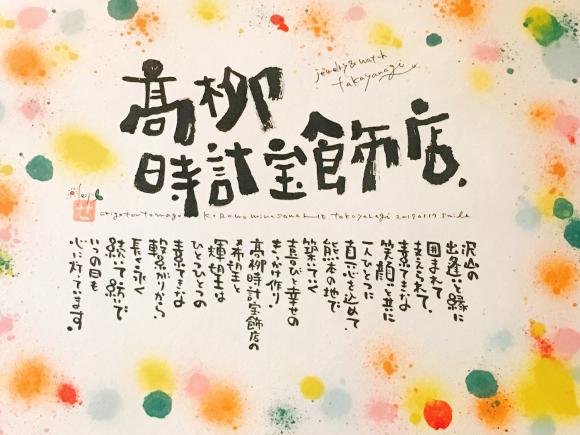 jewelry & watch
takayanagi
髙柳
時計宝飾店.
沢山の
出逢いと縁に
囲まれて
支えられて、
素敵な
笑顔と共に
一人ひとりに
真心を込めて、
熊本の地で
築いていく
喜びと幸せの
きっかけ作り。
髙柳時計宝飾店の
希望と
輝く想いは
ひとつひとつの
素敵な
繋がりから、
長く永く
続いて続いて
いつの日も
心に灯ています。